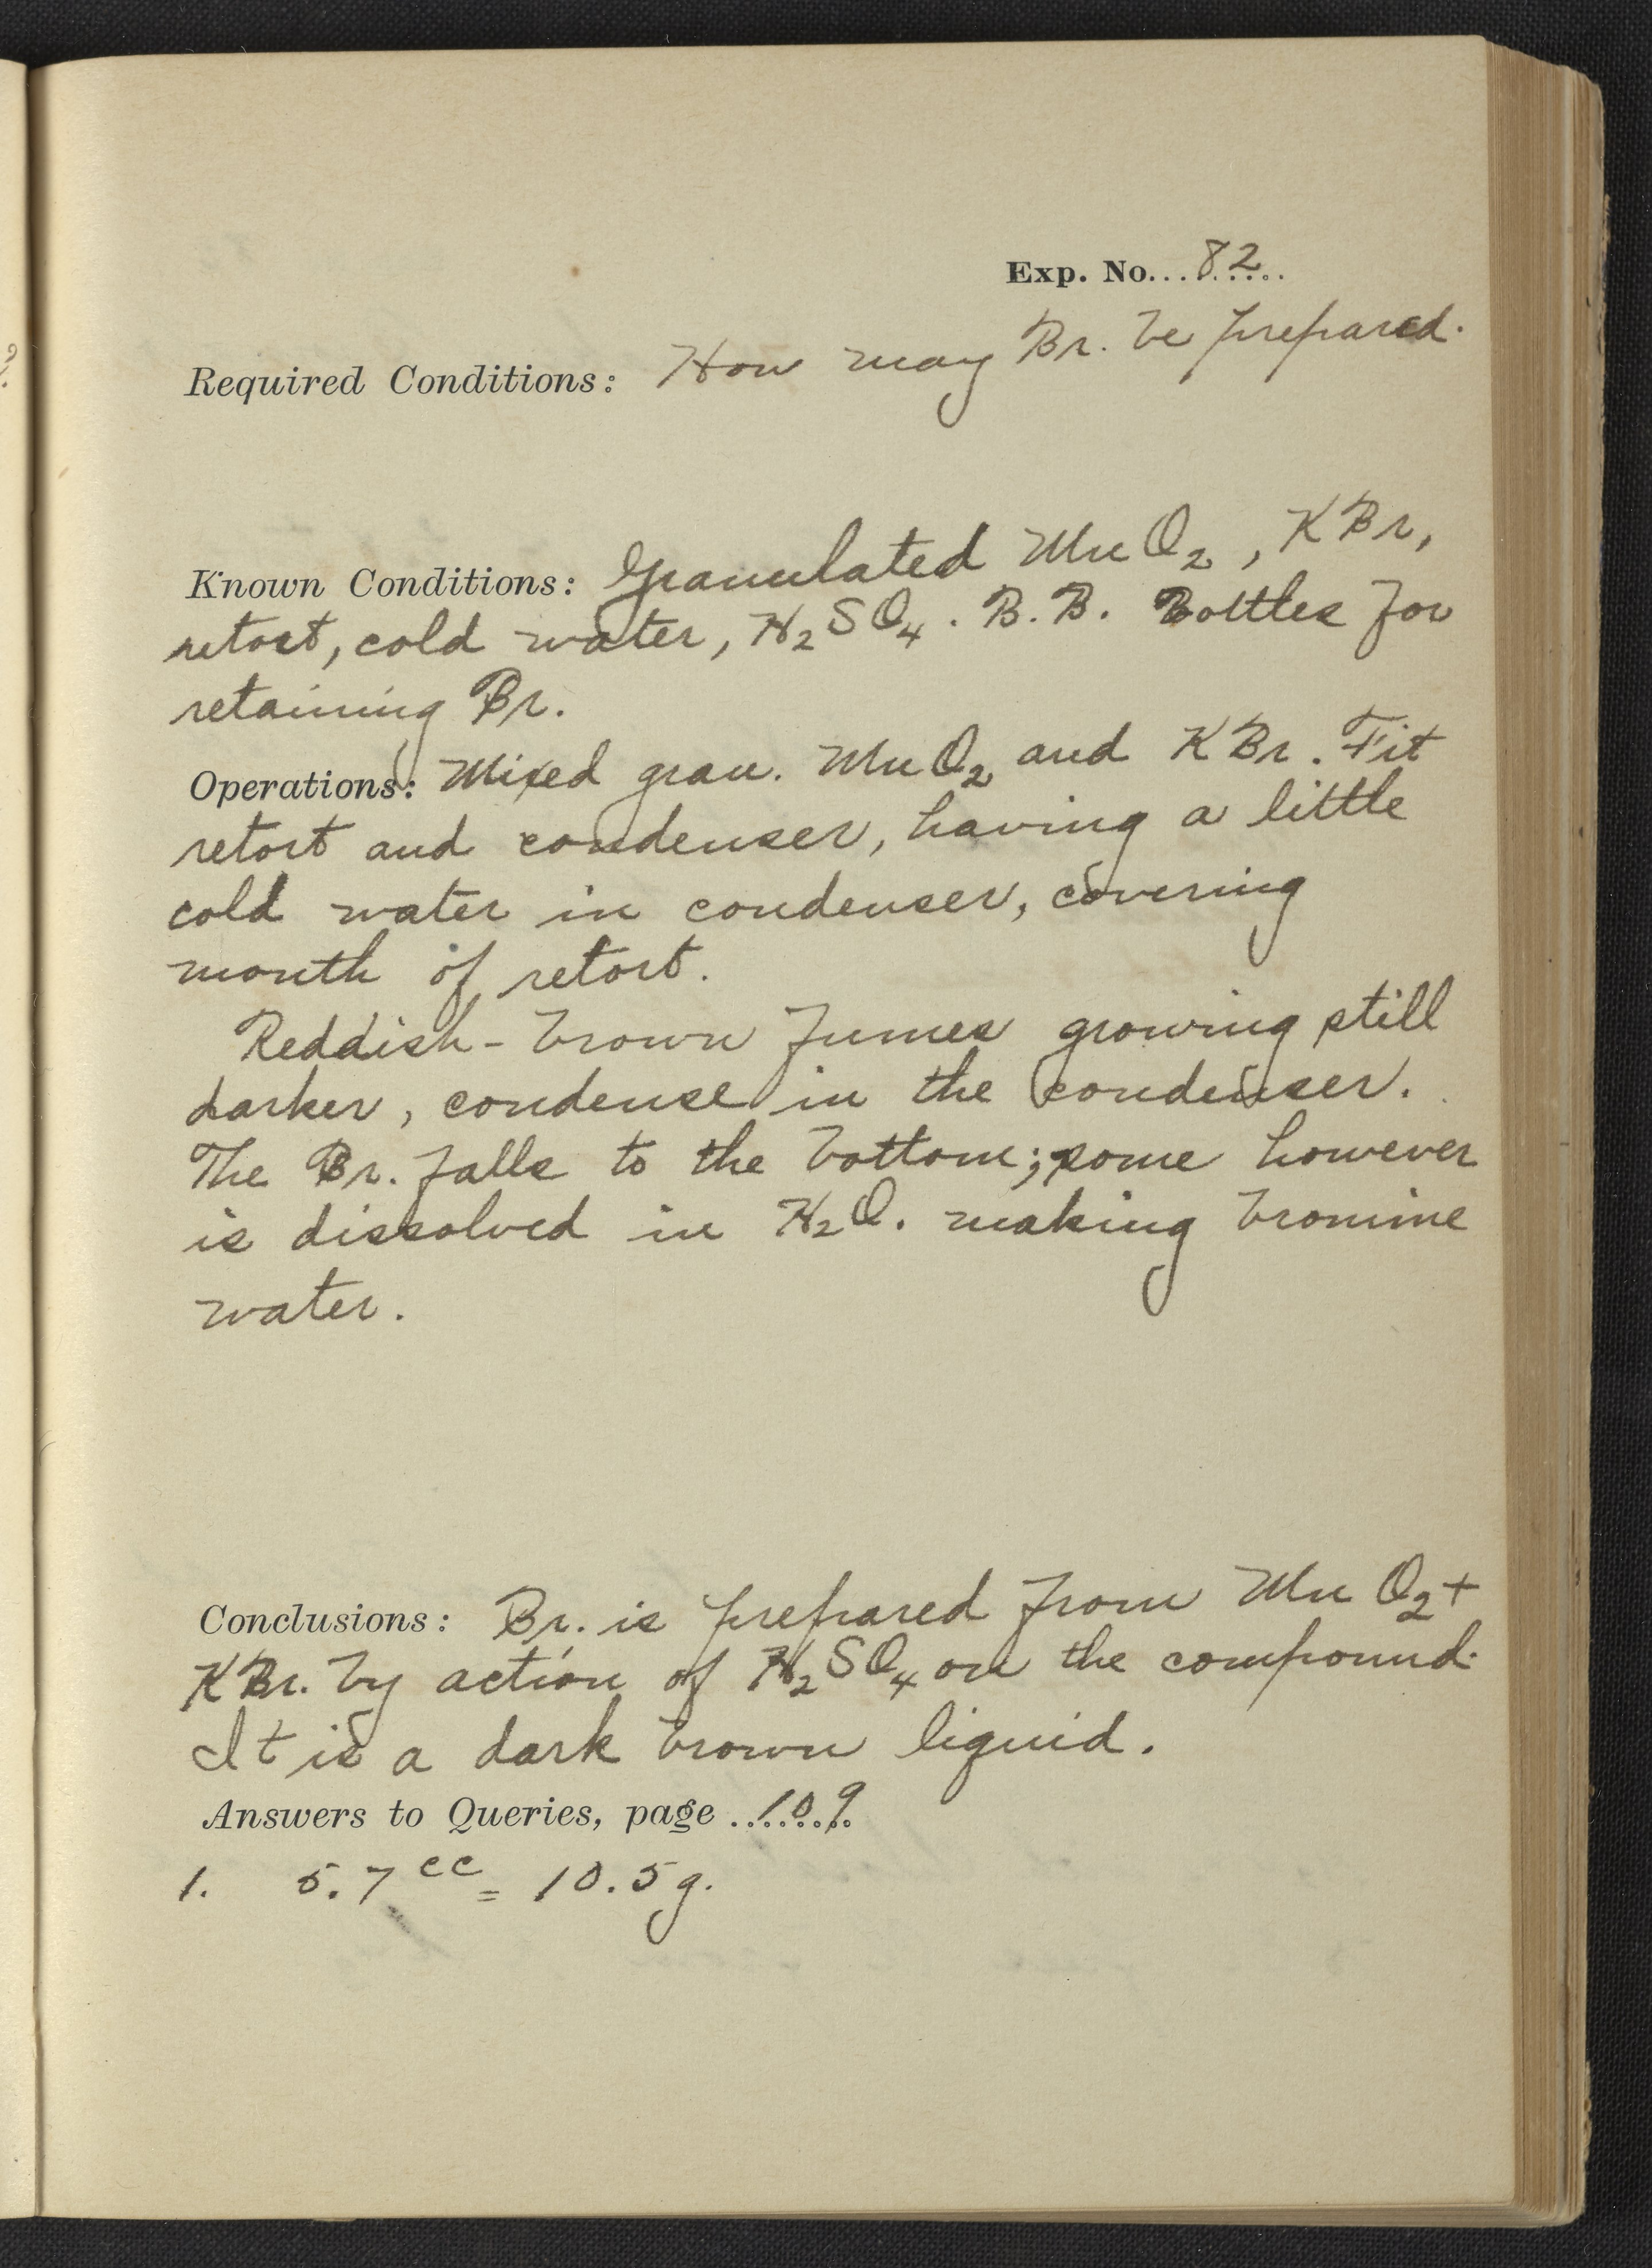 Exp. No. 82
Required Conditions: How may Br. be prepared.
Known Conditions: Granulated MnO2, KBr,
retort, cold water, H2SO4. B.B. Bottles for
retaining Br.
Operations: Mixed gran. MnO2 and KBr. Fit
retort and condenser, having a little
cold water in condenser, covering
mouth of retort.
Reddish-brown fumes growing still
darker, condense in the condenser.
The Br. falls to the bottom; some however
is dissolved in H2O. making bromine
water.
Conclusions: Br. is prepared from MnO2 +
KBr. by action of H2SO4 on the compound.
It is a dark brown liquid.
Answers to Queries, page 109
1. 5.7cc = 10.5g.